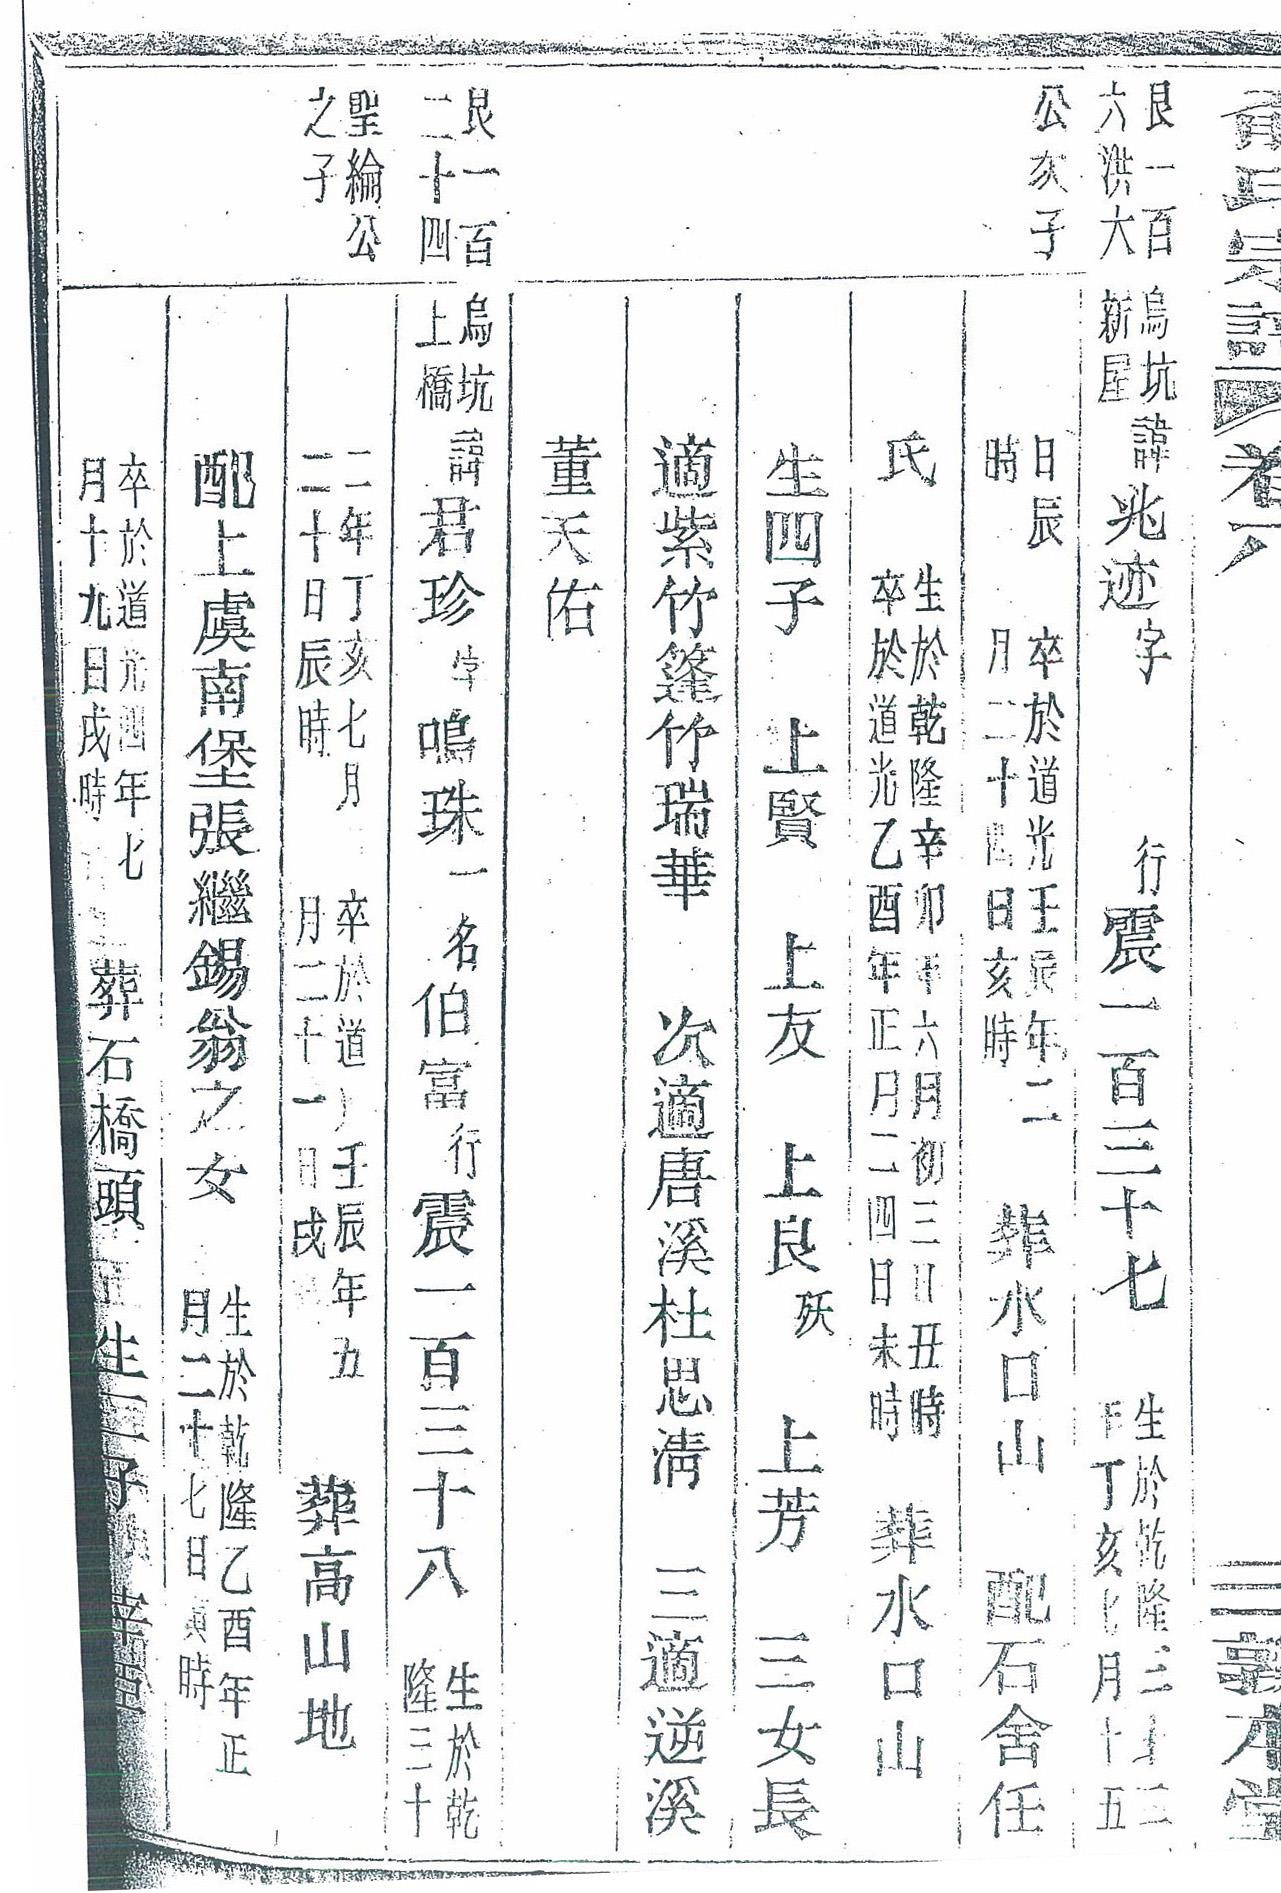 氏宗譜 卷八 敦本堂
艮一百六洪大 烏坑新屋 諱兆迹字 行震一百三十七 生於乾隆三十二年丁亥七月十五
公次子 日辰時 卒於道光壬辰年二月二十四日亥時 葬水口山 配石舍任
氏 生於乾隆辛卯年六月初三日丑時卒於道光乙酉年正月二四日未時 葬水口山
生四子 上賢 上友 上良殀 上芳 三女長
適紫竹篷竹瑞華 次適唐溪杜思清 三適逆溪
董天佑
艮一百二十四 烏坑上橋 諱君珍字鳴珠一名伯富行震一百三十八 生於乾隆三十
聖綸公之子 二年丁亥七月二十日辰時 卒於道壬辰年五月二十一日戌 葬高山地
配上虞南堡張繼錫翁之女 生於乾隆乙酉年正月二十七日寅時
卒於道光四年七月十九日戌時 葬石橋頭 生二子